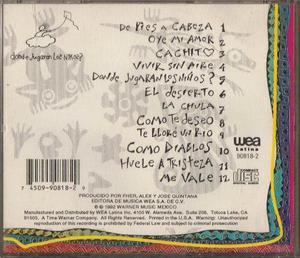 donde Jugaran Los Niños?
DE PIES A CABEZA 1
OYE MI AMOR 2
CACHITO 3
VIVIR SIN AIRE 4
DONDE JUGARAN LOS NIÑOS? 5
EL DESIERTO 6
LA CHULA 7
COMO TE DESEO 8
TE LLORÉ UN RIO 9
COMO DIABLOS 10
HUELE A TRISTEZA 11
ME VALE 12
wea
Latina
90818-2
COMPACT
disc
DIGITAL AUDIO
7 45099-0818-2 9
PRODUCIDO POR FHER, ALEX Y JOSE QUINTANA
EDITORA DE MUSICA WEA S.A. DE C.V.
℗ © 1992 WARNER MUSIC MEXICO
Manufactured and Distributed by WEA Latina Inc, 4100 W. Alameda Ave. Suite 206, Toluca Lake, CA
91505, A Time Warner Company. All Rights Reserved. Printed in the U.S.A. Warning: Unauthorized
reproduction of this recording is prohibited by Federal Law and subject to criminal prosecution